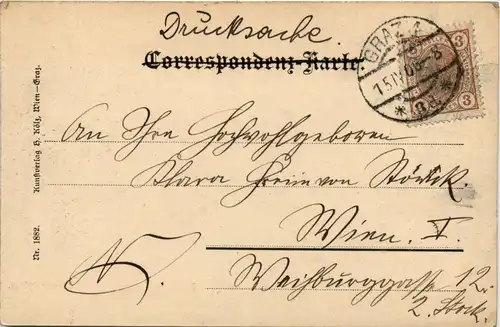 Drucksache
Correspondenz-Karte.
GRAZ 1
15 IV 06-8
3
3
An Ihre Hochwohlgeboren
Klara Freiin von Störck.
Wien. I.
Weihburggasse 12.
2. Stock.
Nr. 1882. Kunstverlag H. Kölz, Wien-Graz.